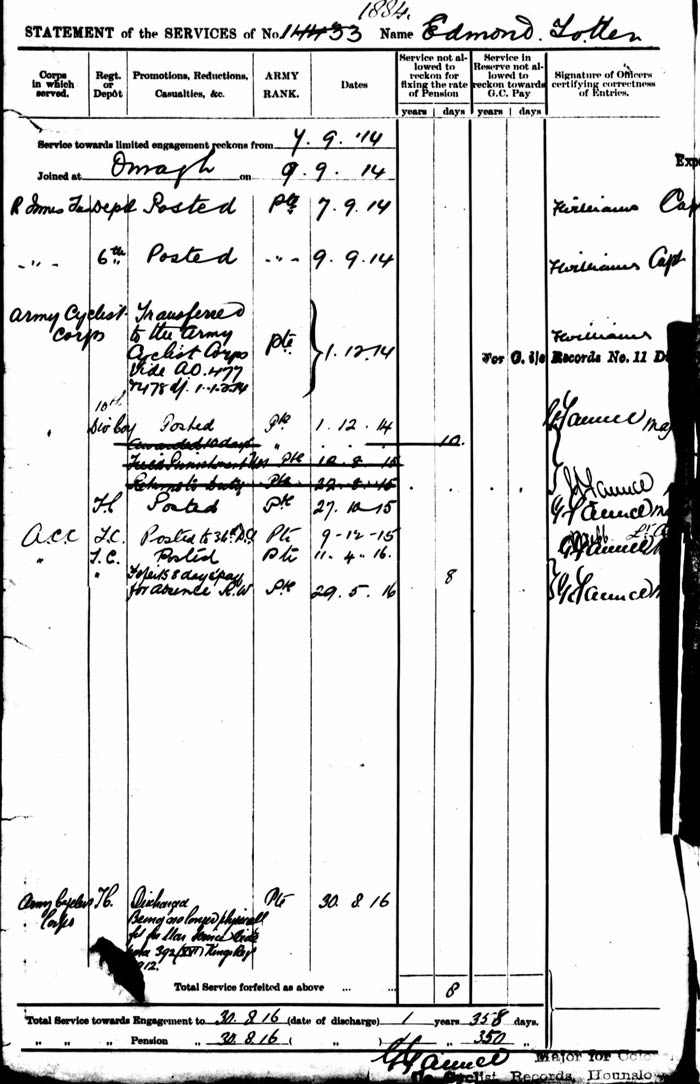 1884.
STATEMENT of the SERVICES of No. 14433 Name Edmond
Corps in which served. Regt. or Depôt Promotions, Reductions, Casualties, &c. ARMY RANK. Dates Service not allowed to reckon for fixing the rate of Pension Service in Reserve not allowed to reckon towards G.C. Pay Signature of Officers certifying correctness of Entries.
years days years days
Service towards limited engagement reckons from 7. 9. '14
Joined at Omagh on 9. 9. 14
R Innis Fus Depot Posted Pte 7. 9. 14 Williams Cap
" 6th Posted " 9. 9. 14 Williams Capt
Army Cyclist Corps Transferred Williams
to the Army Pte 1. 12. 14
Cyclist Corps For O. i/c Records No. 11 D
Vide A.O. 477
10th
Div Coy Posted Pte 1. 12. 14 Maj
Awarded 10 days " 10
Field Punishment No Pte 12. 8. 15
Returns to Duty Pte 22. 8. 15
Posted Pte 27. 10. 15
A.C.C. T.C. Posted to 36th Pte 9-12-15
" T.C. Posted Pte 11. 4. 16.
" Forfeits 8 days pay 8
for absence R.W Pte 29. 5. 16
Army Cyclist Corps Discharged Pte 30. 8. 16
Being no longer physically
fit for War Service
para 392 (XVI) Kings Reg
Total Service forfeited as above ... ... 8
Total Service towards Engagement to 30.8.16 (date of discharge) 1 years 358 days.
" " Pension " 30.8.16 ( " ) " 350 "
Major for Colo
Cyclist Records, Hounslo